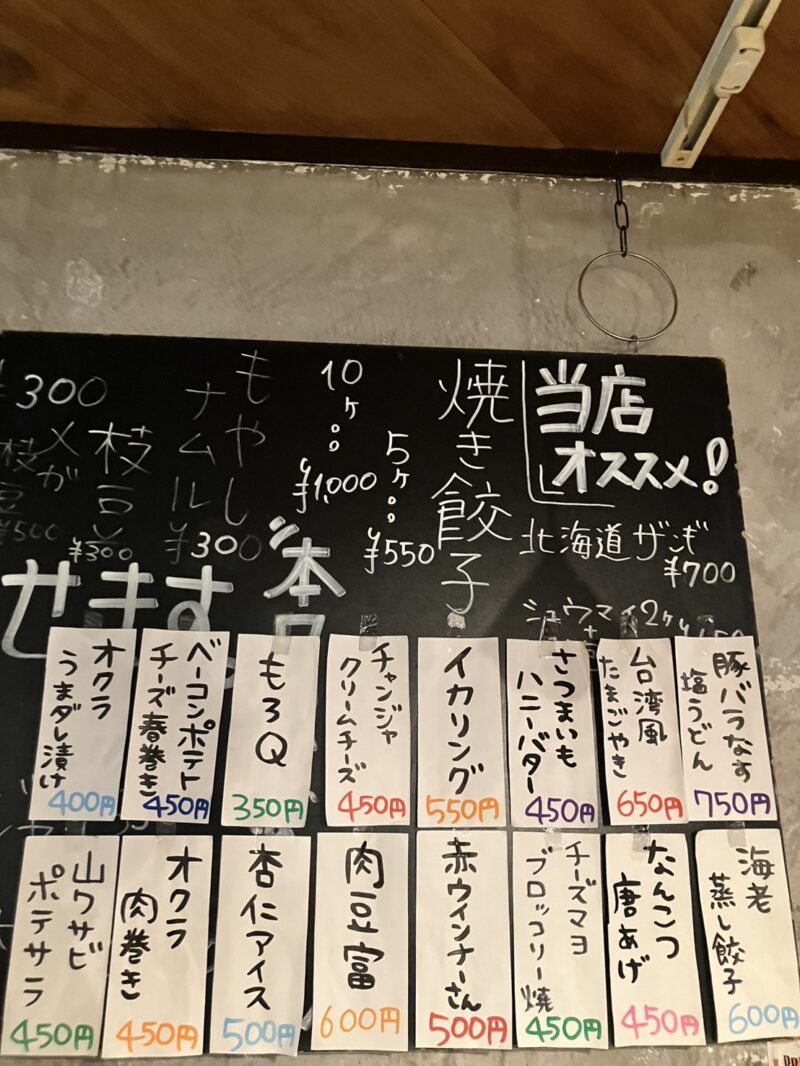 当店
オススメ!
北海道ザンギ
¥700
シュウマイ2ヶ
焼き餃子
5ヶ。。¥550
10ヶ。。¥1,000
もやし
ナムル
¥300
枝豆
¥300
¥300
¥500
本日
せます。
豚バラなす
塩うどん
750円
台湾風
たまごやき
650円
さつまいも
ハニーバター
450円
イカリング
550円
チャンジャ
クリームチーズ
450円
もろQ
350円
ベーコンポテト
チーズ春巻き
450円
オクラ
うまダレ漬け
400円
海老
蒸し餃子
600円
なんこつ
唐あげ
450円
チーズマヨ
ブロッコリー焼
450円
赤ウインナーさん
500円
肉豆富
600円
杏仁アイス
500円
オクラ
肉巻き
450円
山ワサビ
ポテサラ
450円